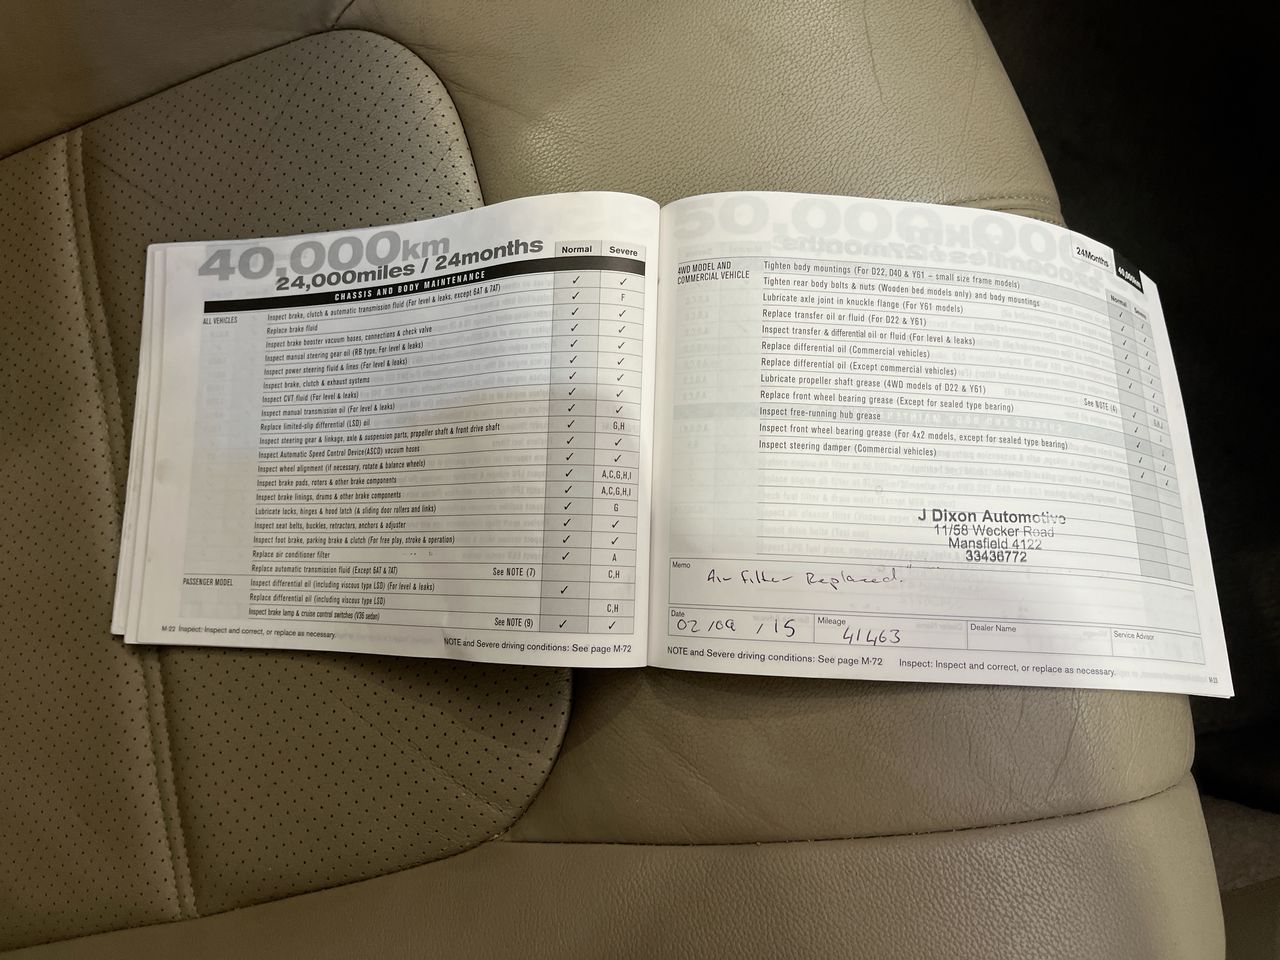 40,000km
24,000miles / 24months
Normal
Severe
CHASSIS AND BODY MAINTENANCE
ALL VEHICLES
Inspect brake, clutch & automatic transmission fluid (For level & leaks, except 6AT & 7AT) ✓ ✓
Replace brake fluid ✓ F
Inspect brake booster vacuum hoses, connections & check valve ✓ ✓
Inspect manual steering gear oil (RB type, For level & leaks) ✓ ✓
Inspect power steering fluid & lines (For level & leaks) ✓ ✓
Inspect brake, clutch & exhaust systems ✓ ✓
Inspect CVT fluid (For level & leaks) ✓ ✓
Inspect manual transmission oil (For level & leaks) ✓ ✓
Replace limited-slip differential (LSD) oil ✓ ✓
Inspect steering gear & linkage, axle & suspension parts, propeller shaft & front drive shaft ✓ G,H
Inspect Automatic Speed Control Device(ASCD) vacuum hoses ✓ ✓
Inspect wheel alignment (if necessary, rotate & balance wheels) ✓ ✓
Inspect brake pads, rotors & other brake components ✓ A,C,G,H,I
Inspect brake linings, drums & other brake components ✓ A,C,G,H,I
Lubricate locks, hinges & hood latch (& sliding door rollers and links) ✓ G
Inspect seat belts, buckles, retractors, anchors & adjuster ✓ ✓
Inspect foot brake, parking brake & clutch (For free play, stroke & operation) ✓ ✓
Replace air conditioner filter ✓ A
Replace automatic transmission fluid (Except 6AT & 7AT) See NOTE (7) C,H
PASSENGER MODEL
Inspect differential oil (including viscous type LSD) (For level & leaks) ✓
Replace differential oil (including viscous type LSD) C,H
Inspect brake lamp & cruise control switches (V36 sedan) See NOTE (9) ✓ ✓
M-22 Inspect: Inspect and correct, or replace as necessary.
NOTE and Severe driving conditions: See page M-72
24Months
40,000km
Normal
Severe
4WD MODEL AND
COMMERCIAL VEHICLE
Tighten body mountings (For D22, D40 & Y61 – small size frame models)
Tighten rear body bolts & nuts (Wooden bed models only) and body mountings
Lubricate axle joint in knuckle flange (For Y61 models)
Replace transfer oil or fluid (For D22 & Y61)
Inspect transfer & differential oil or fluid (For level & leaks)
Replace differential oil (Commercial vehicles)
Replace differential oil (Except commercial vehicles)
Lubricate propeller shaft grease (4WD models of D22 & Y61)
Replace front wheel bearing grease (Except for sealed type bearing) See NOTE (4)
Inspect free-running hub grease
Inspect front wheel bearing grease (For 4x2 models, except for sealed type bearing)
Inspect steering damper (Commercial vehicles)
J Dixon Automotive
11/58 Wecker Road
Mansfield 4122
33436772
Memo
Air Filter Replaced.
Date
02/09/15
Mileage
41463
Dealer Name
Service Advisor
NOTE and Severe driving conditions: See page M-72
Inspect: Inspect and correct, or replace as necessary.
M-23